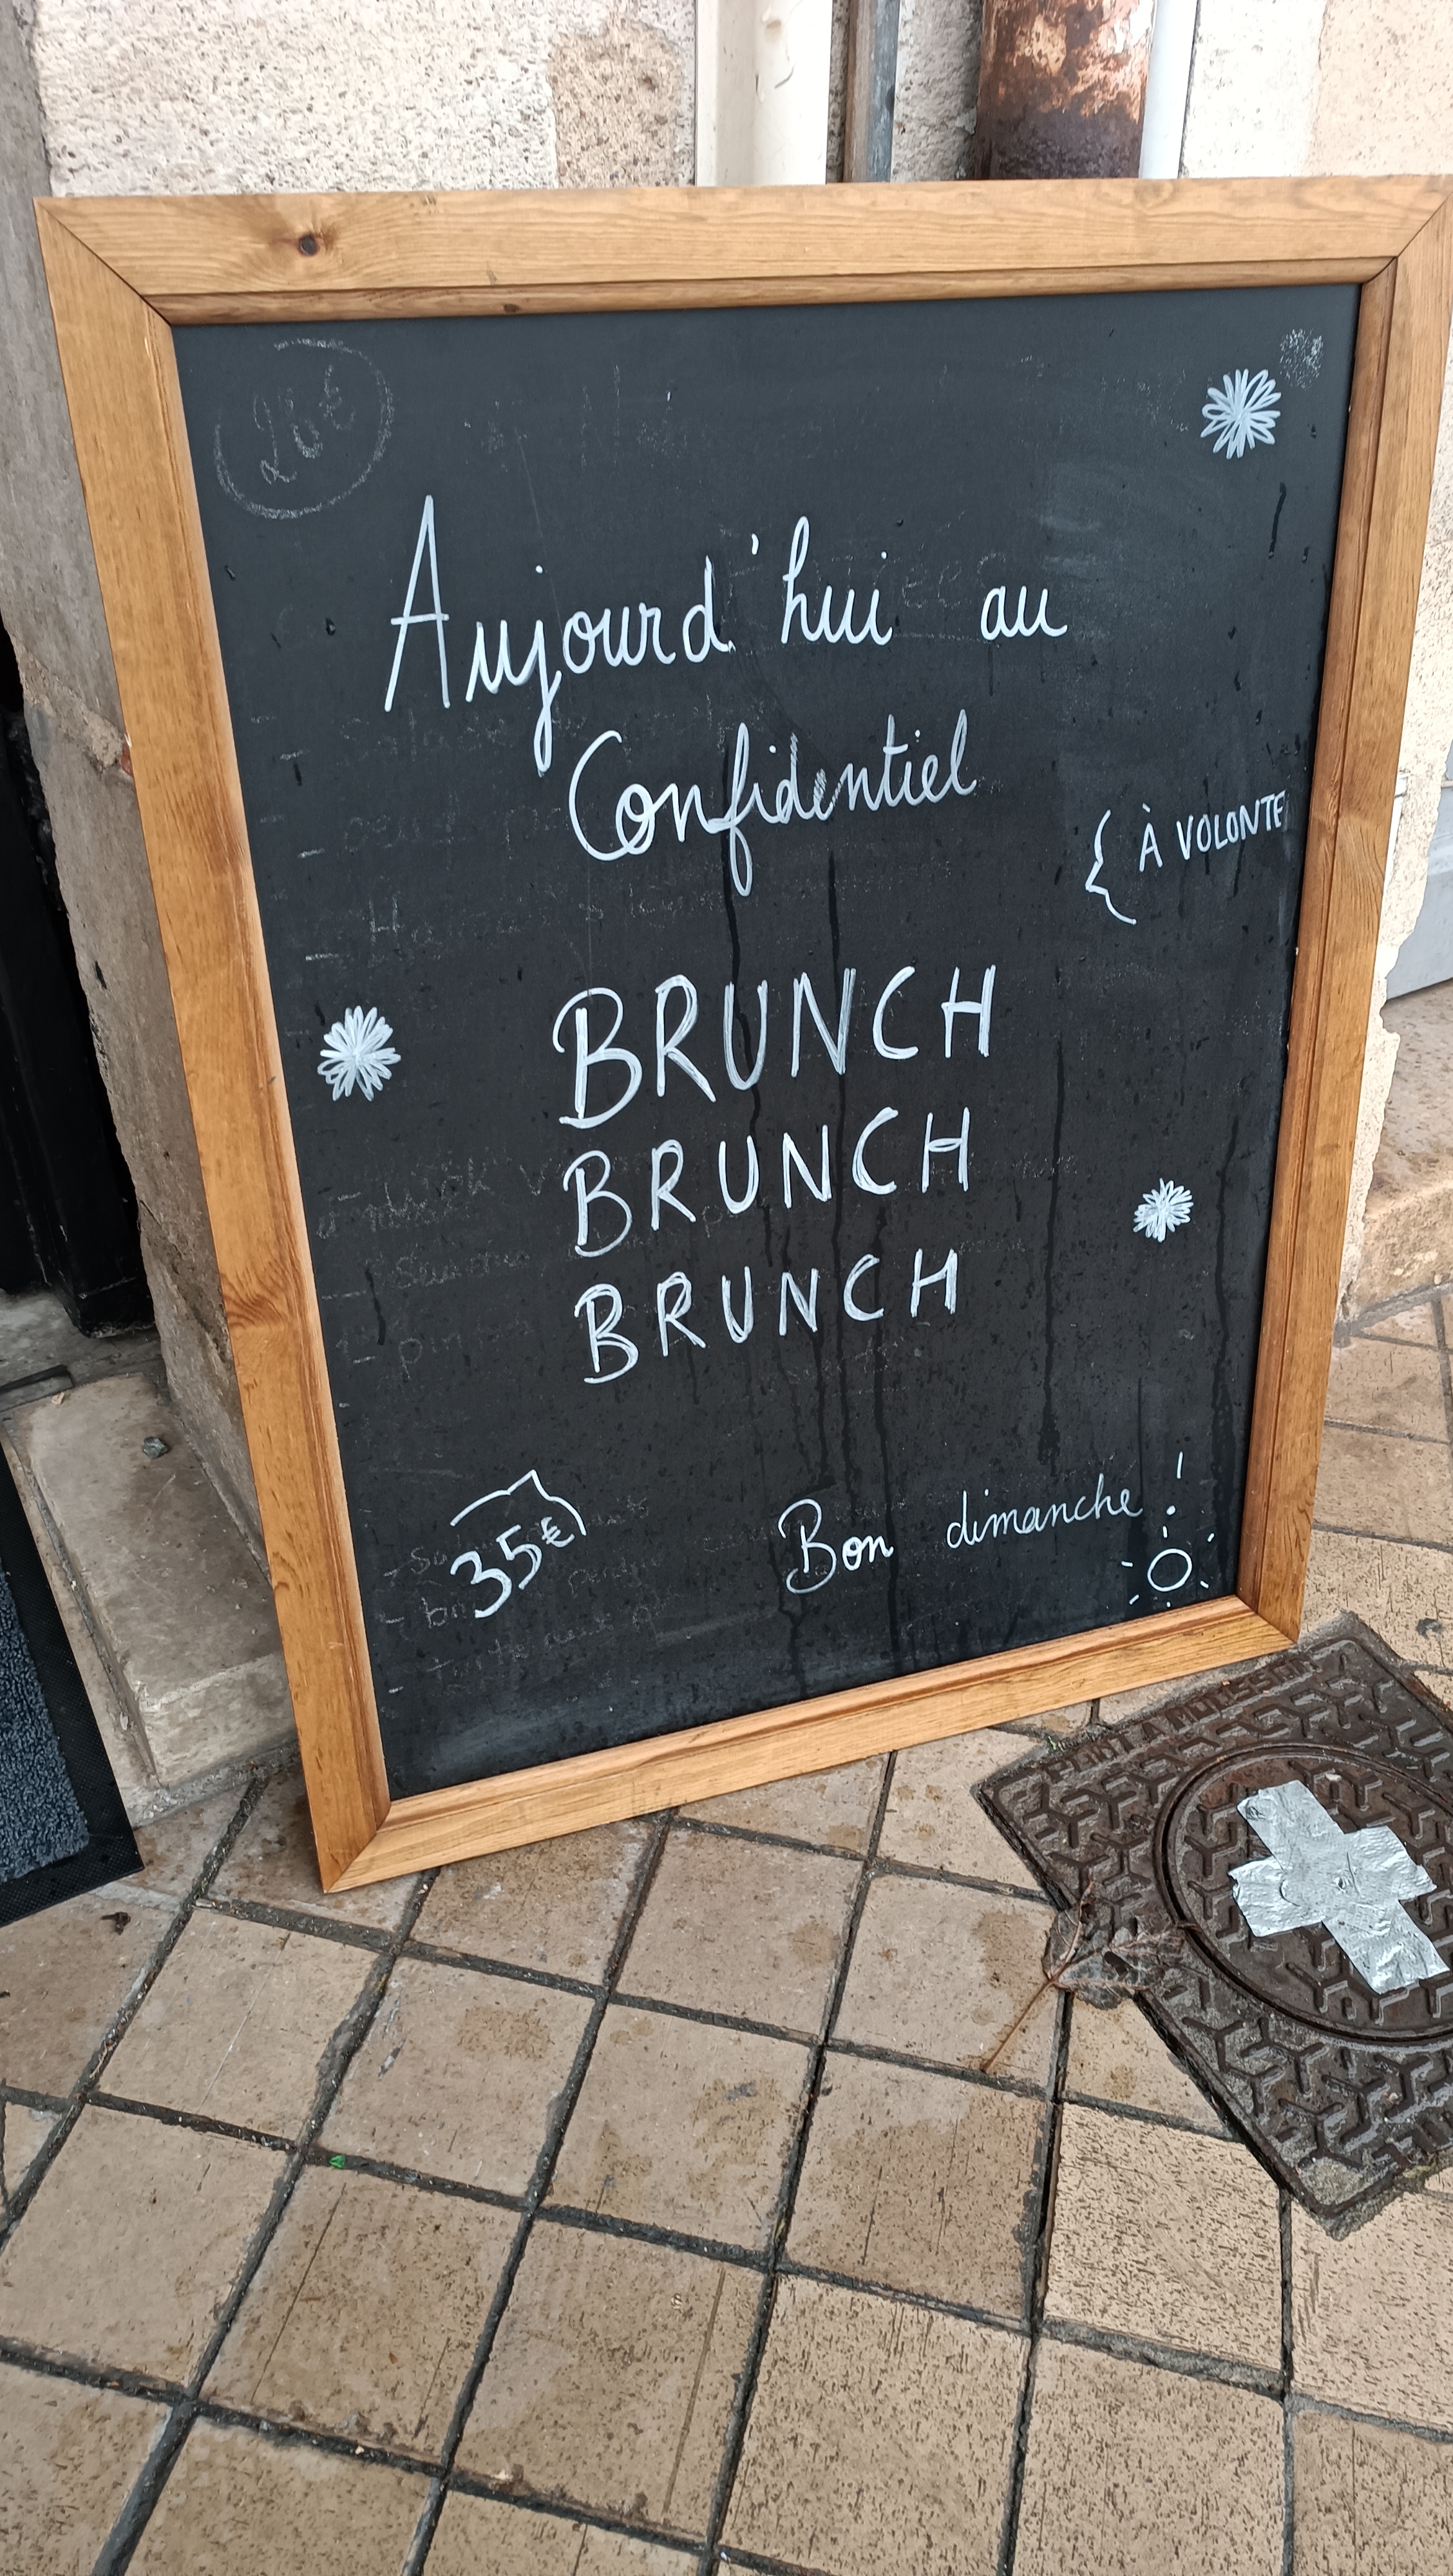 28€
Aujourd'hui au
Confidentiel
À VOLONTE
BRUNCH
BRUNCH
BRUNCH
35€
Bon dimanche !
PONT A MOUSSON